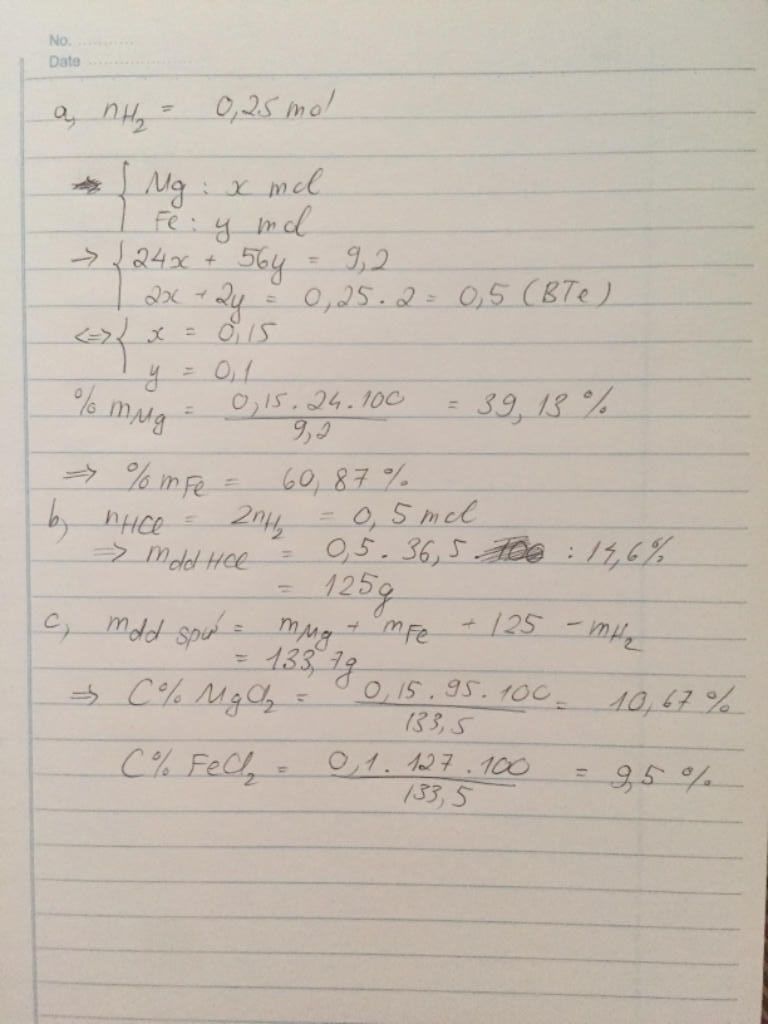 No. ............
Date ......................
a, nH₂ = 0,25 mol
{ Mg : x mol
Fe : y mol
→ { 24x + 56y = 9,2
2x + 2y = 0,25 . 2 = 0,5 (BTe)
<=> { x = 0,15
y = 0,1
% mMg = 0,15 . 24 . 100 / 9,2 = 39,13 %
=> % mFe = 60,87 %
b, nHCl = 2nH₂ = 0,5 mol
=> mdd HCl = 0,5 . 36,5 : 14,6 %
= 125g
c, mdd spư = mMg + mFe + 125 - mH₂
= 133,7g
=> C% MgCl₂ = 0,15 . 95 . 100 / 133,5 = 10,67 %
C% FeCl₂ = 0,1 . 127 . 100 / 133,5 = 9,5 %